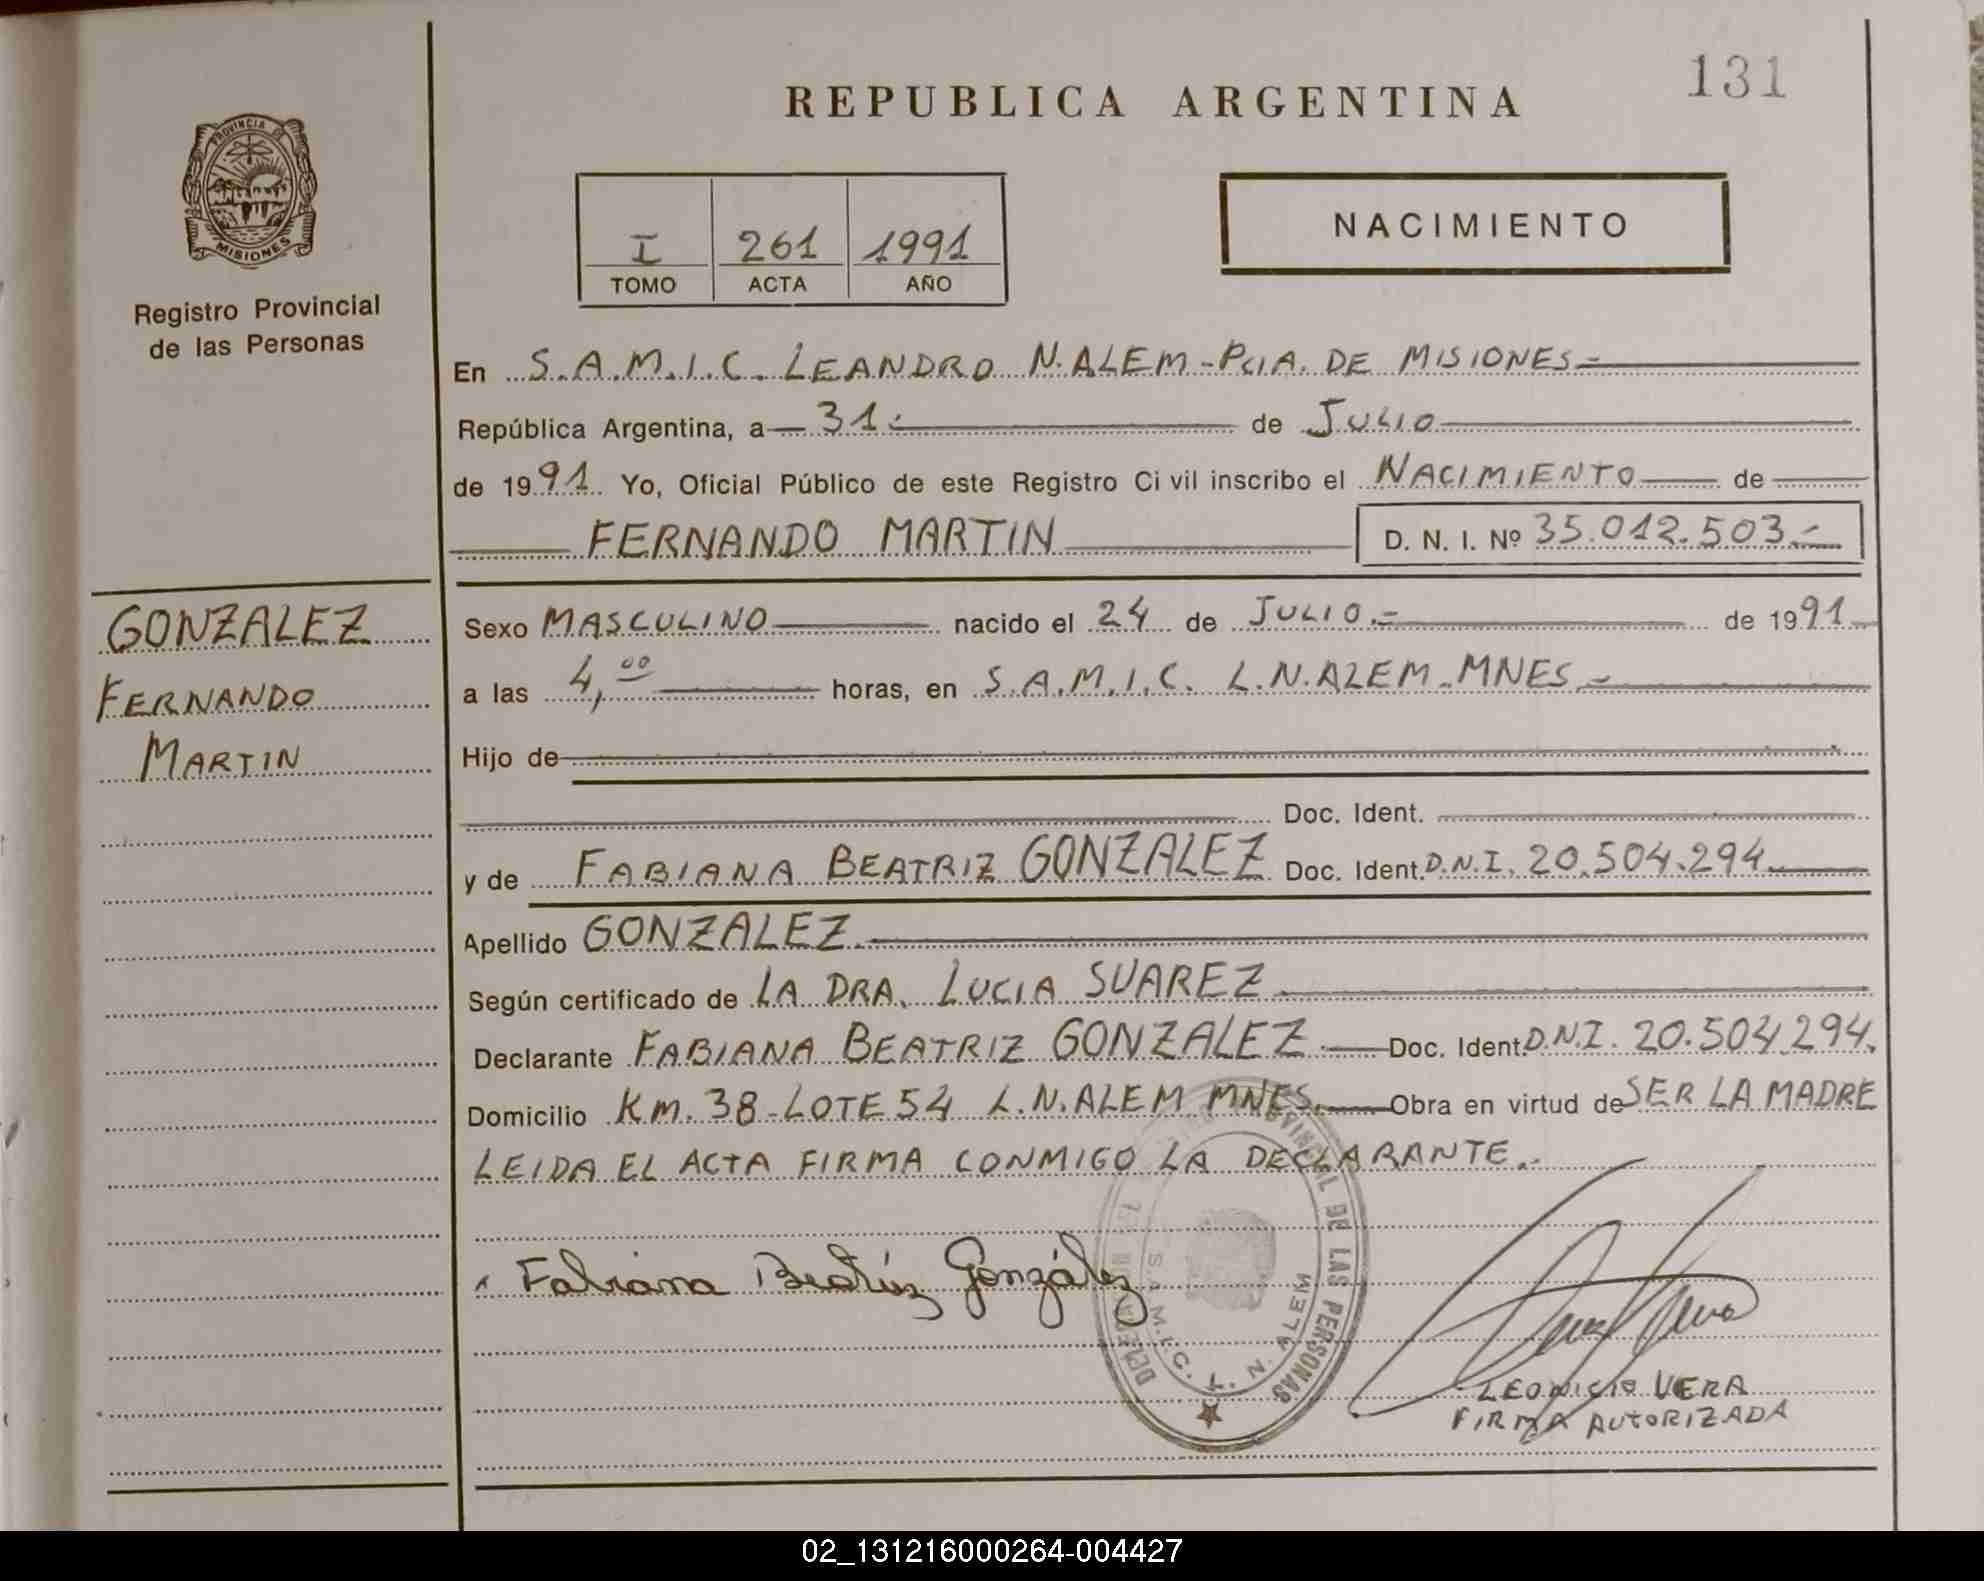 131
REPUBLICA ARGENTINA
PROVINCIA DE
MISIONES
Registro Provincial
de las Personas
I 261 1991
TOMO ACTA AÑO
NACIMIENTO
En S.A.M.I.C. LEANDRO N. ALEM - PCIA. DE MISIONES.-
República Argentina, a 31.- de JULIO
de 1991. Yo, Oficial Público de este Registro Ci vil inscribo el NACIMIENTO de
FERNANDO MARTIN D. N. I. Nº 35.012.503.-
GONZALEZ
FERNANDO
MARTIN
Sexo MASCULINO nacido el 24 de JULIO.- de 1991
a las 4,00 horas, en S.A.M.I.C. L.N. ALEM - MNES.-
Hijo de
Doc. Ident.
y de FABIANA BEATRIZ GONZALEZ Doc. Ident. D.N.I. 20.504.294.
Apellido GONZALEZ.
Según certificado de LA DRA. LUCIA SUAREZ
Declarante FABIANA BEATRIZ GONZALEZ. Doc. Ident. D.N.I. 20.504.294.
Domicilio KM. 38 - LOTE 54 L.N. ALEM MNES. Obra en virtud de SER LA MADRE
LEIDA EL ACTA FIRMA CONMIGO LA DECLARANTE.-
Fabiana Beatríz González
PROVINCIAL DE LAS PERSONAS
S.A.M.I.C. L. N. ALEM
LEONICIO VERA
FIRMA AUTORIZADA
02_131216000264-004427